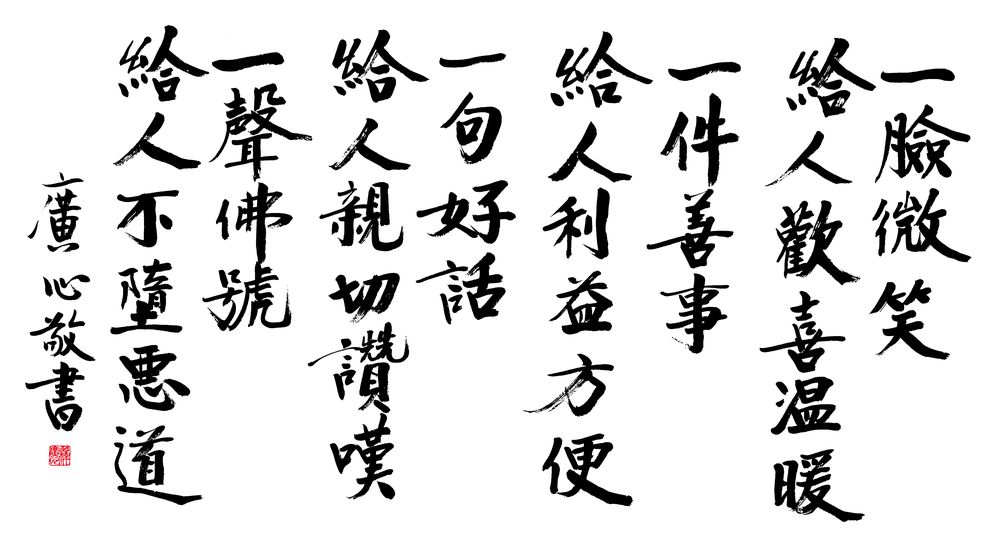 一臉微笑
給人歡喜温暖
一件善事
給人利益方便
一句好話
給人親切讚嘆
一聲佛號
給人不墮惡道
廣心敬書